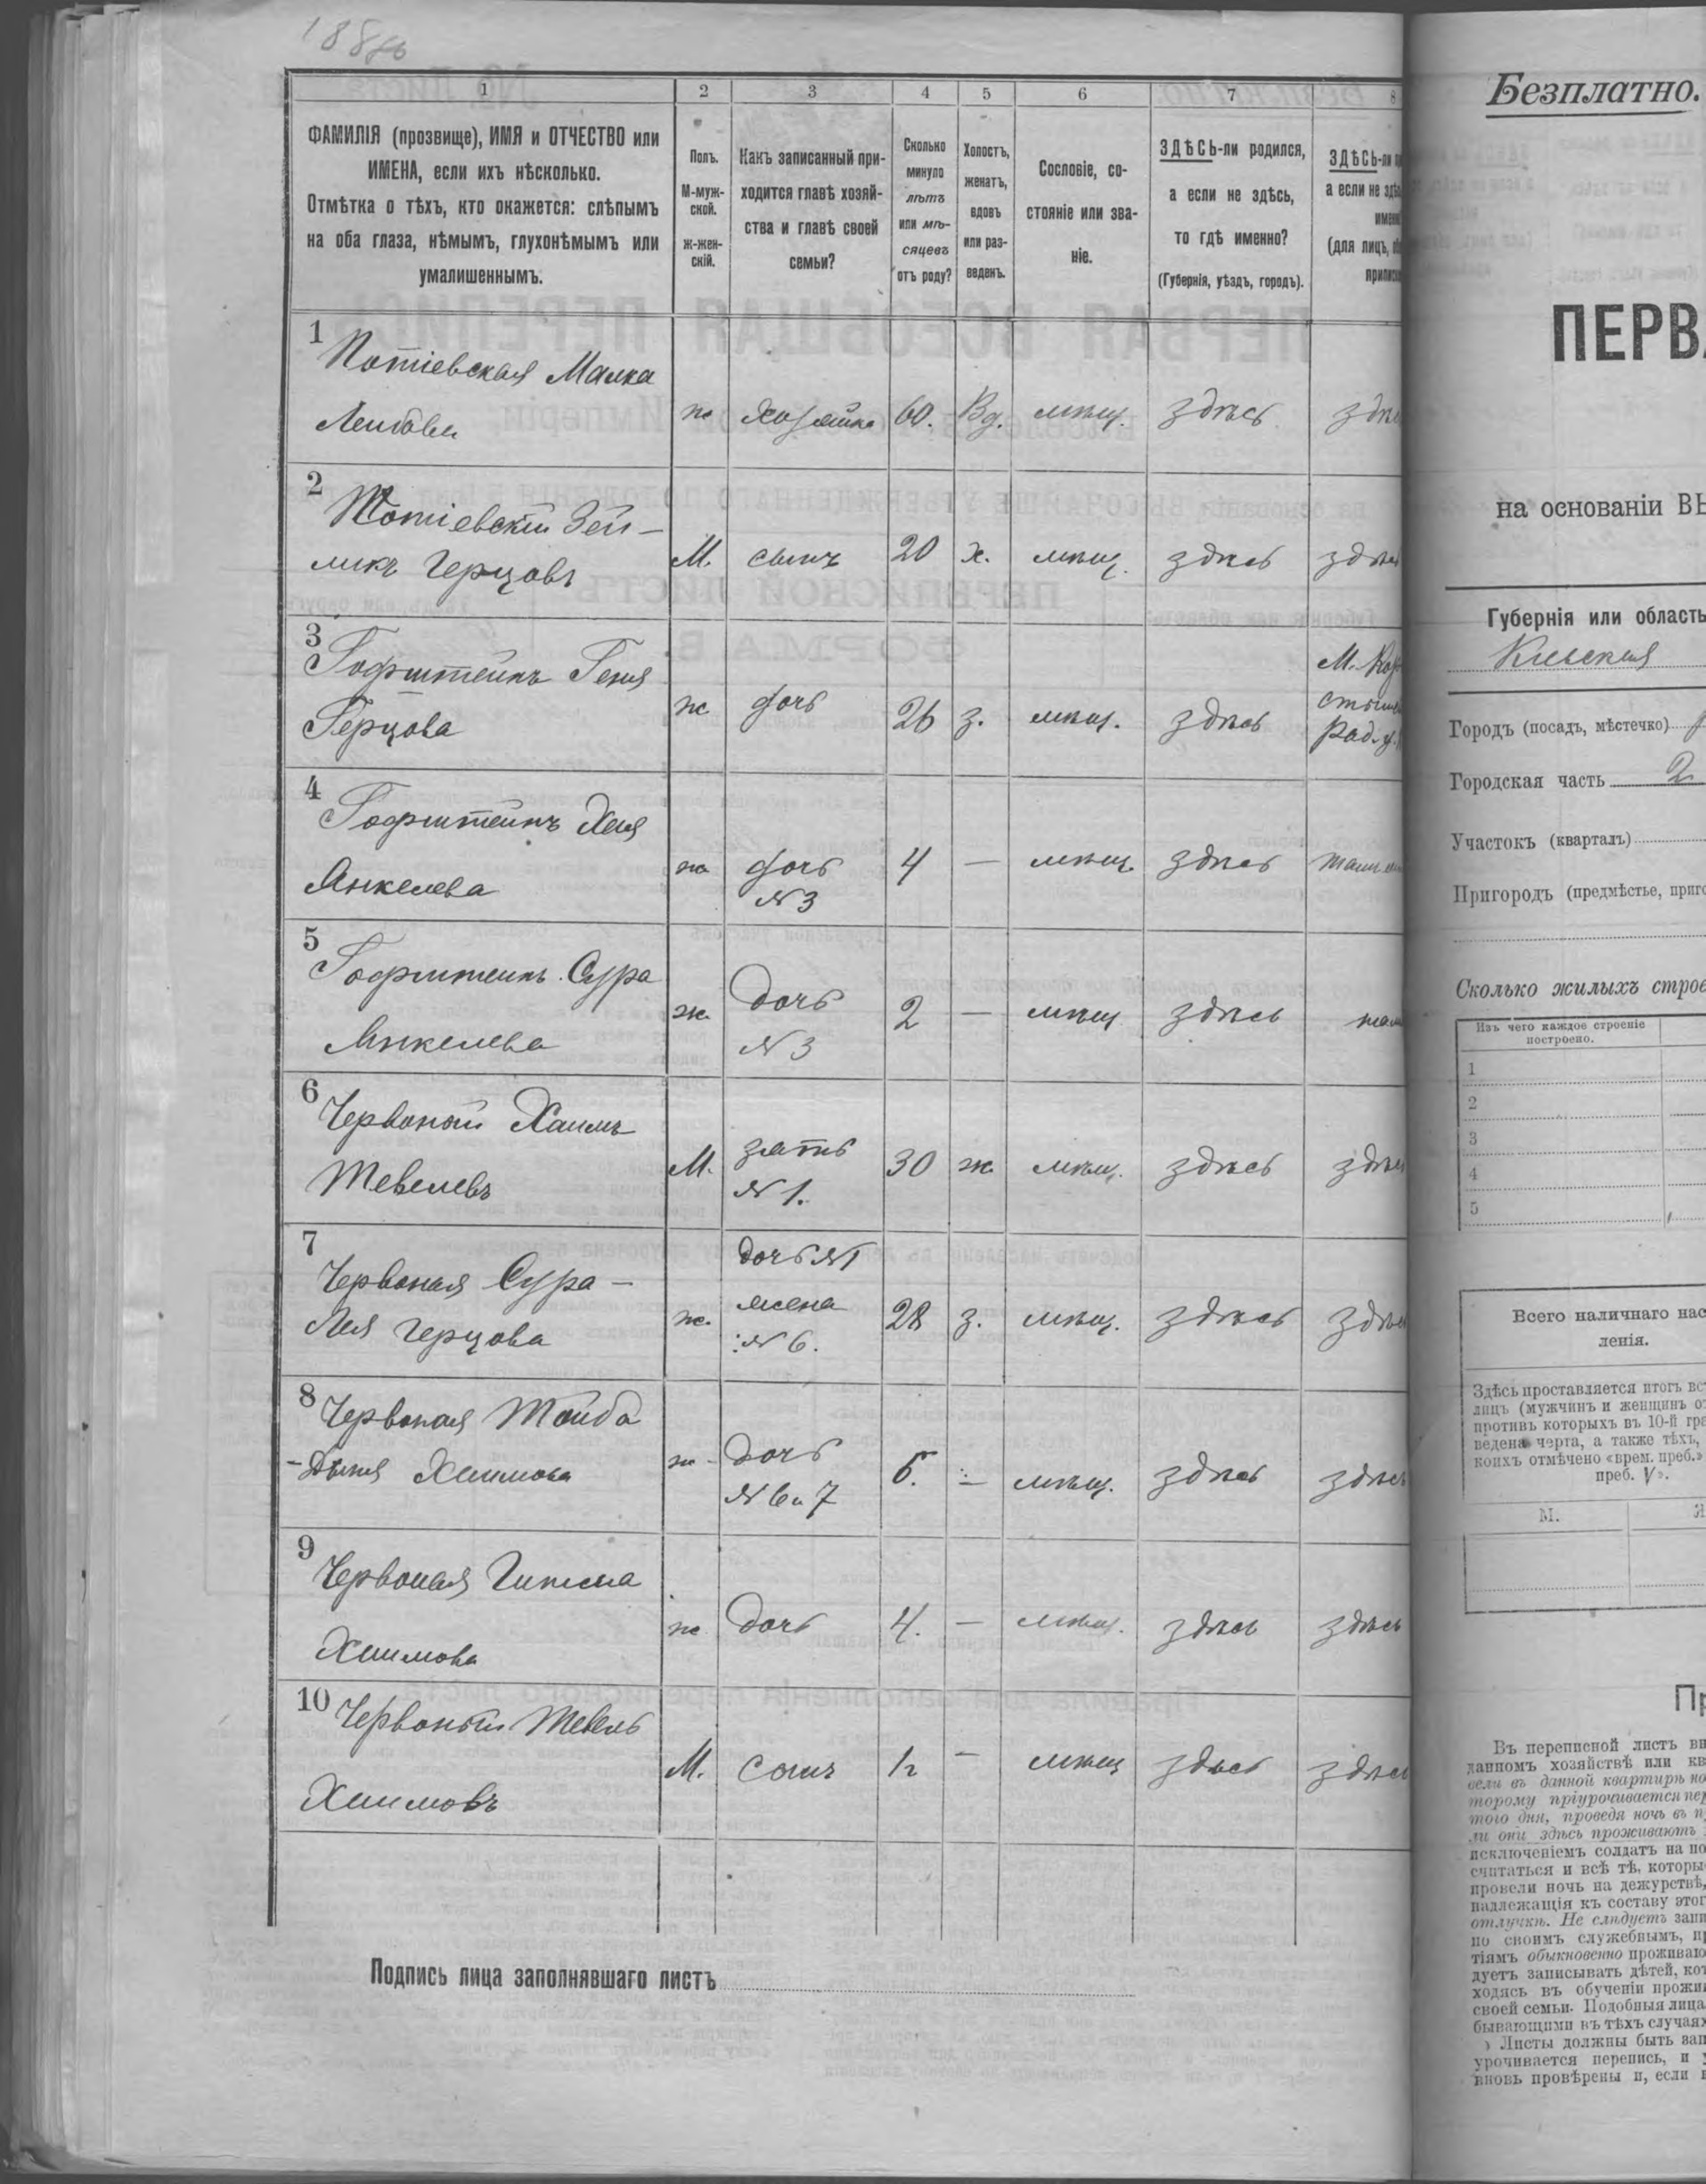 188
1 2 3 4 5 6 7 8
ФАМИЛІЯ (прозвище), ИМЯ и ОТЧЕСТВО или
ИМЕНА, если ихъ нѣсколько.
Отмѣтка о тѣхъ, кто окажется: слѣпымъ
на оба глаза, нѣмымъ, глухонѣмымъ или
умалишеннымъ.
Полъ.
М-муж-
ской.
ж-жен-
скій.
Какъ записанный при-
ходится главѣ хозяй-
ства и главѣ своей
семьи?
Сколько
минуло
лѣтъ
или мѣ-
сяцевъ
отъ роду?
Холостъ,
женатъ,
вдовъ
или раз-
веденъ.
Сословіе, со-
стояніе или зва-
ніе.
ЗДѢСЬ-ли родился,
а если не здѣсь,
то гдѣ именно?
(Губернія, уѣздъ, городъ).
ЗДѢСЬ-ли
а если не
(для лицъ,
1 Потіевская Малка
Лейбова
ж Хозяйка 60. Вд. мѣщ. здѣсь
2 Потіевскій Зей-
ликъ Герцовъ
М. сынъ 20 х. мѣщ. здѣсь
3 Гофштейнъ Геня
Герцова
ж дочь 26 з. мѣщ. здѣсь
М.
Рад. у.
4 Гофштейнъ Хая
Янкелева
ж дочь 4 — мѣщ. здѣсь
№ 3
5 Гофштейнъ Сура
Янкелева
ж. дочь 2 — мѣщ здѣсь
№ 3
6 Червоный Хаимъ
Тевелевъ
М. зять 30 ж. мѣщ. здѣсь
№ 1.
7 Червоная Сура-
Лея Герцова
ж. дочь №1
жена
№ 6.
28 з. мѣщ. здѣсь
8 Червоная Тойба
Хаимова
ж дочь — мѣщ. здѣсь
№ 6 и 7
9 Червоная
Хаимова
ж дочь 4. — мѣщ. здѣсь здѣсь
10 Червоный Тевель
Хаимовъ
М. сынъ — мѣщ здѣсь
Подпись лица заполнявшаго листъ
Безплатно.
на основаніи
Губернія или область
Кіевская
Городъ (посадъ, мѣстечко)
Городская часть 2
Участокъ (кварталъ)
Пригородъ (предмѣстье,
Сколько жилыхъ
Изъ чего каждое строеніе
построено.
1
2
3
4
5
Всего наличнаго
ленія.
Здѣсь проставляется итогъ
лицъ (мужчинъ и женщинъ
противъ которыхъ въ 10-й
ведена черта, а также тѣхъ,
коихъ отмѣчено «врем. преб.»
преб. V».
М.
Въ переписной листъ
данномъ хозяйствѣ или
если въ данной квартирѣ
торому пріурочивается
того дня, проведя ночь въ
ли они здѣсь проживаютъ
исключеніемъ солдатъ на
считаться и всѣ тѣ,
провели ночь на дежурствѣ,
надлежащія къ составу
отлучкѣ. Не слѣдуетъ
по своимъ служебнымъ,
тіямъ обыкновенно
дуетъ записывать дѣтей,
ходясь въ обученіи
своей семьи. Подобныя лица
бывающими въ тѣхъ случаяхъ
Листы должны быть
урочивается перепись, и
вновь провѣрены и, если